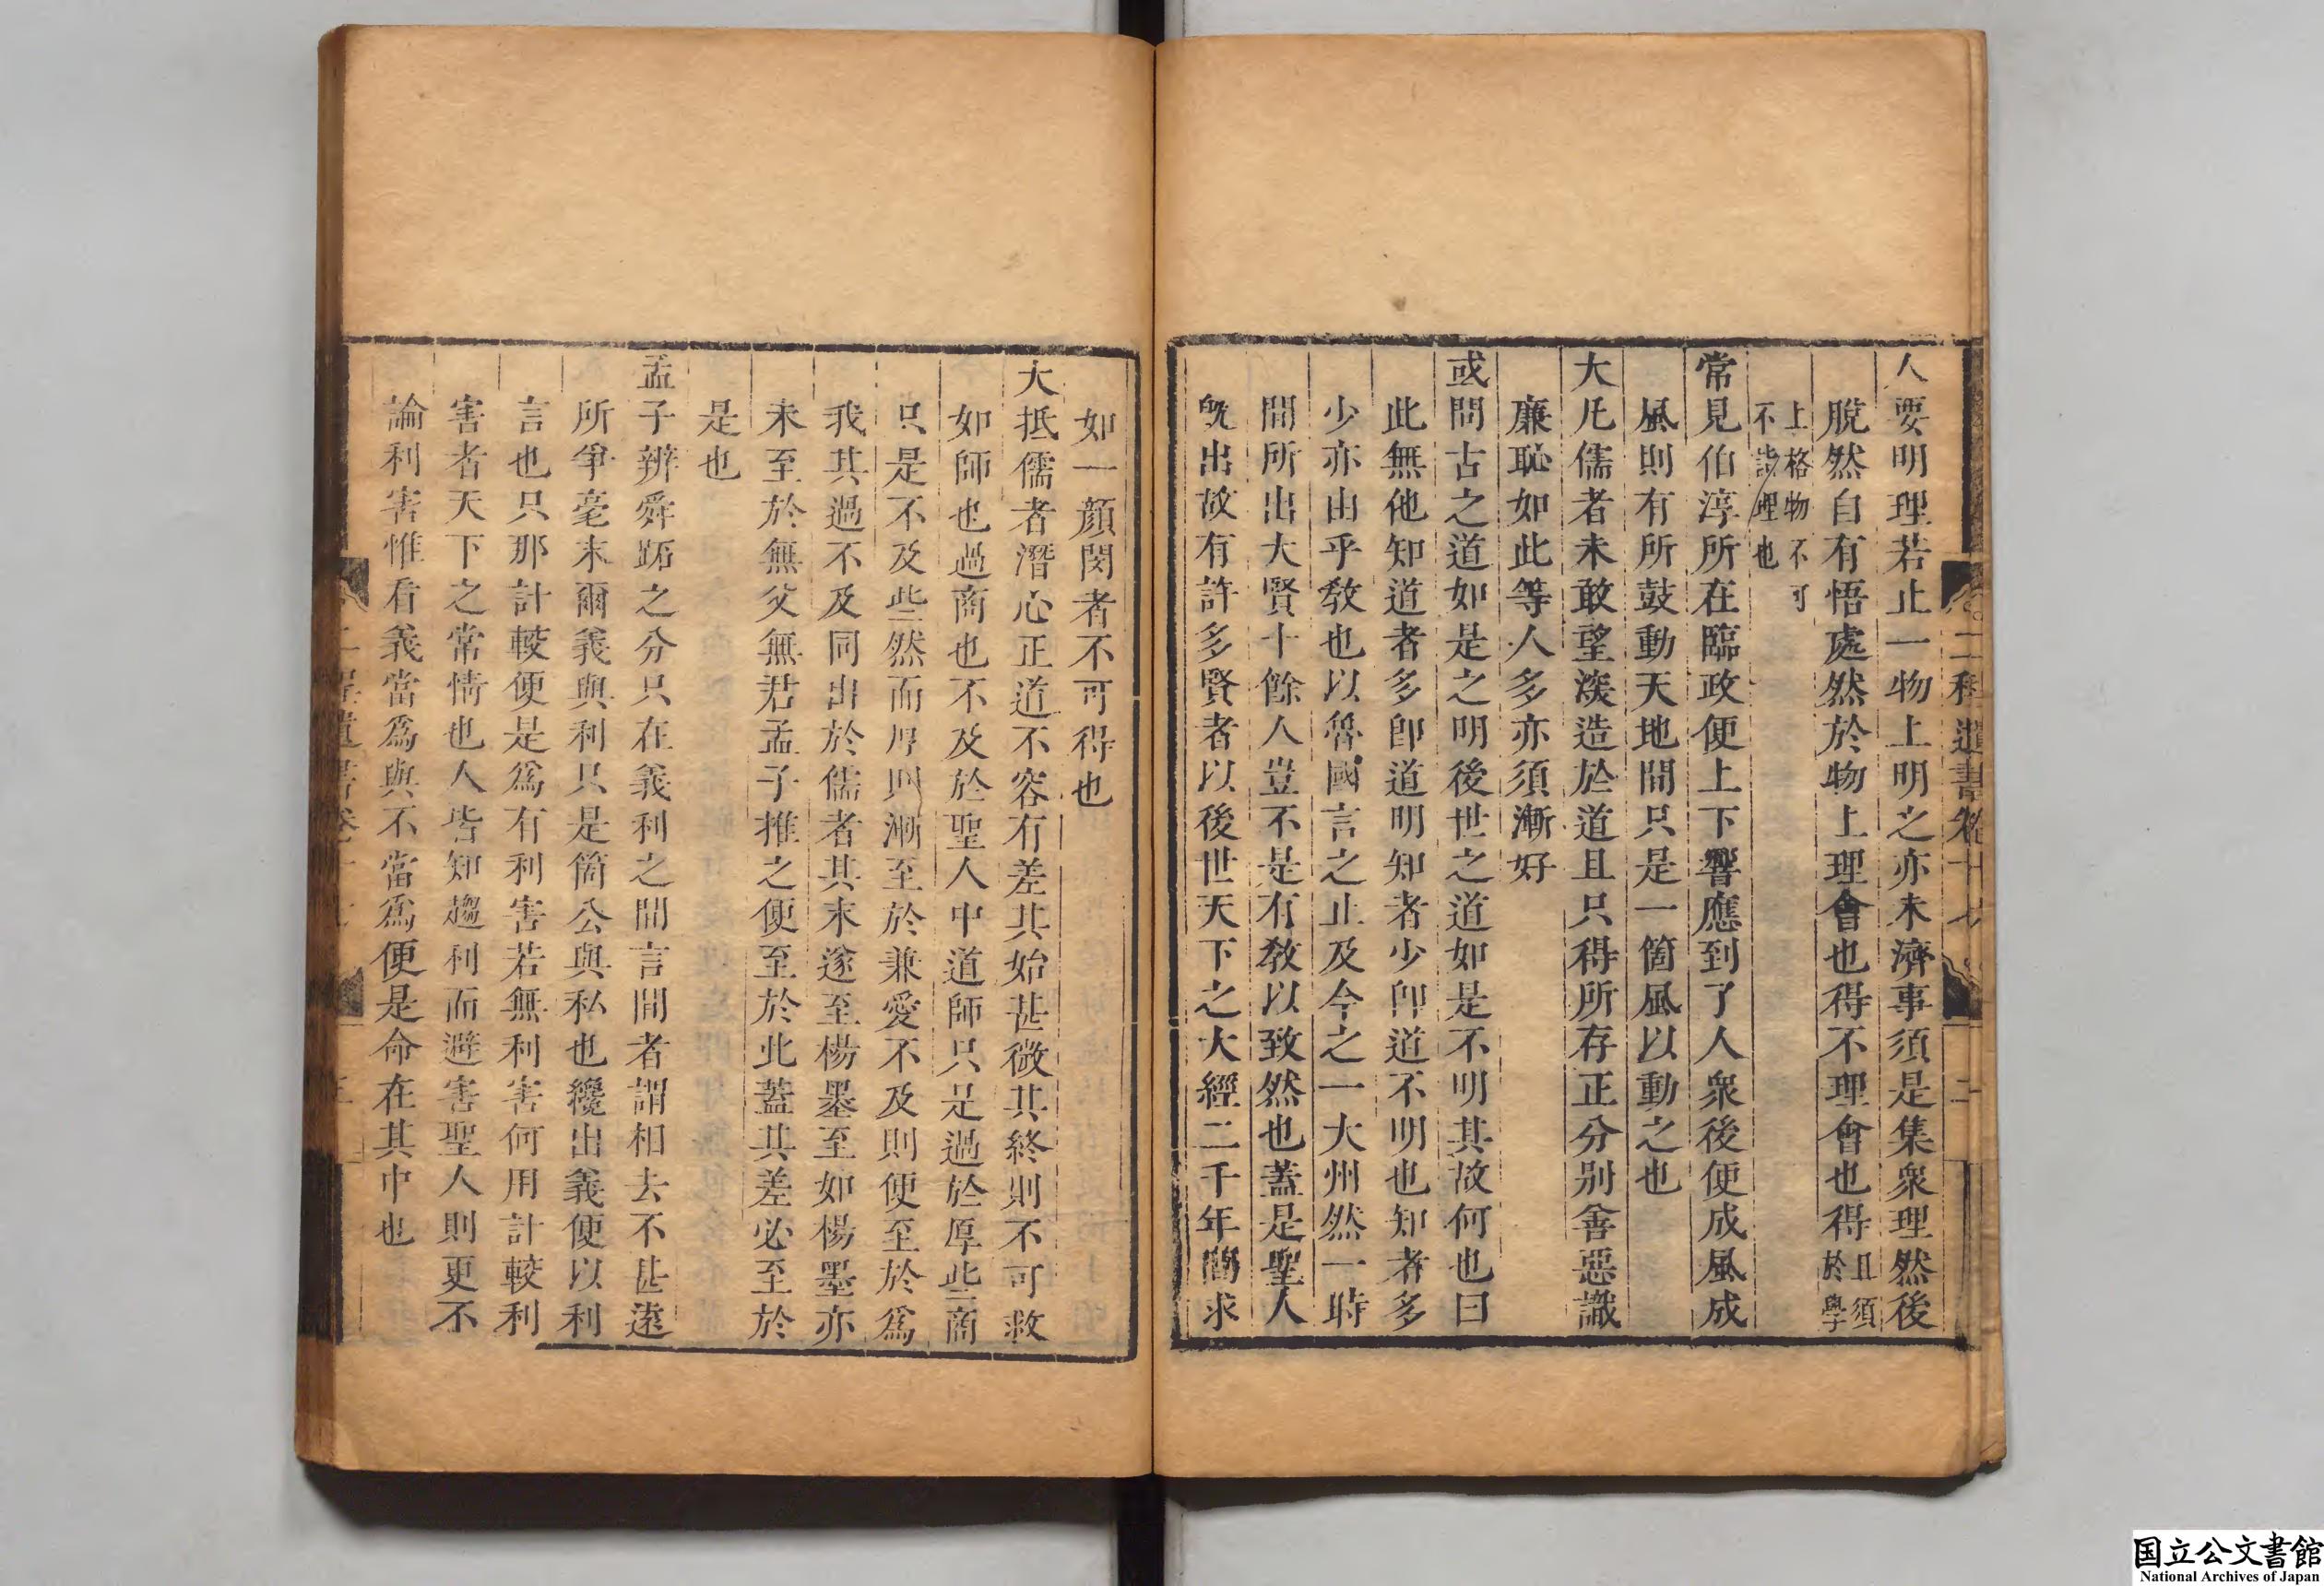 人要明理若止一物上明之亦未濟事須是集衆理然後
脫然自有悟處然於物上理會也得不理會也得且須於學
上格物不可不詣理也
常見伯淳所在臨政便上下響應到了人衆後便成風成
風則有所鼓動天地間只是一箇風以動之也
大凡儒者未敢望深造於道且只得所存正分別善惡識
廉恥如此等人多亦須漸好
或問古之道如是之明後世之道如是不明其故何也曰
此無他知道者多卽道明知者少卽道不明也知者多
少亦由乎敎也以魯國言之止及今之一大州然一時
間所出大賢十餘人豈不是有敎以致然也蓋是聖人
旣出故有許多賢者以後世天下之大經二千年間求
如一顏閔者不可得也
大抵儒者潛心正道不容有差其始甚微其終則不可救
如師也過商也不及於聖人中道師只是過於厚些商
只是不及些然而厚則漸至於兼愛不及則便至於爲
我其過不及同出於儒者其末遂至楊墨至如楊墨亦
未至於無父無君孟子推之便至於此蓋其差必至於
是也
孟子辨舜跖之分只在義利之間言間者謂相去不甚遠
所爭毫末爾義與利只是箇公與私也纔出義便以利
言也只那計較便是爲有利害若無利害何用計較利
害者天下之常情也人皆知趨利而避害聖人則更不
論利害惟看義當爲與不當爲便是命在其中也
二程遺書卷十七
二
国立公文書館
National Archives of Japan